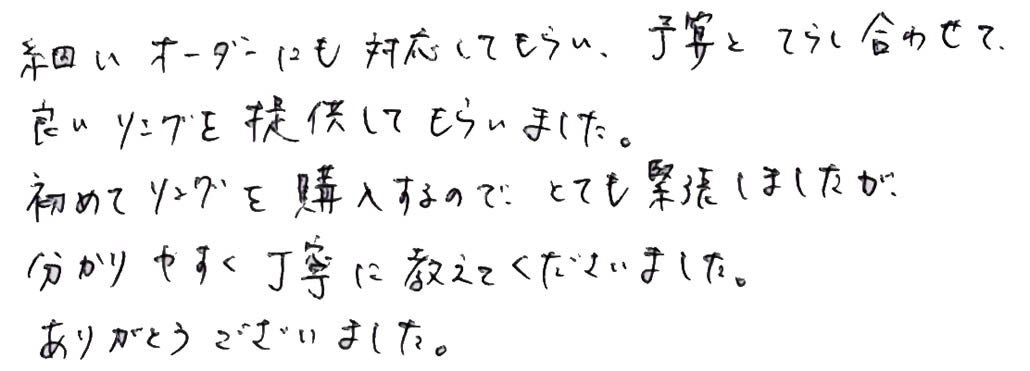 細いオーダーにも対応してもらい、予算とてらし合わせて、
良いリングを提供してもらいました。
初めてリングを購入するので、とても緊張しましたが、
分かりやすく丁寧に教えてくださいました。
ありがとうございました。